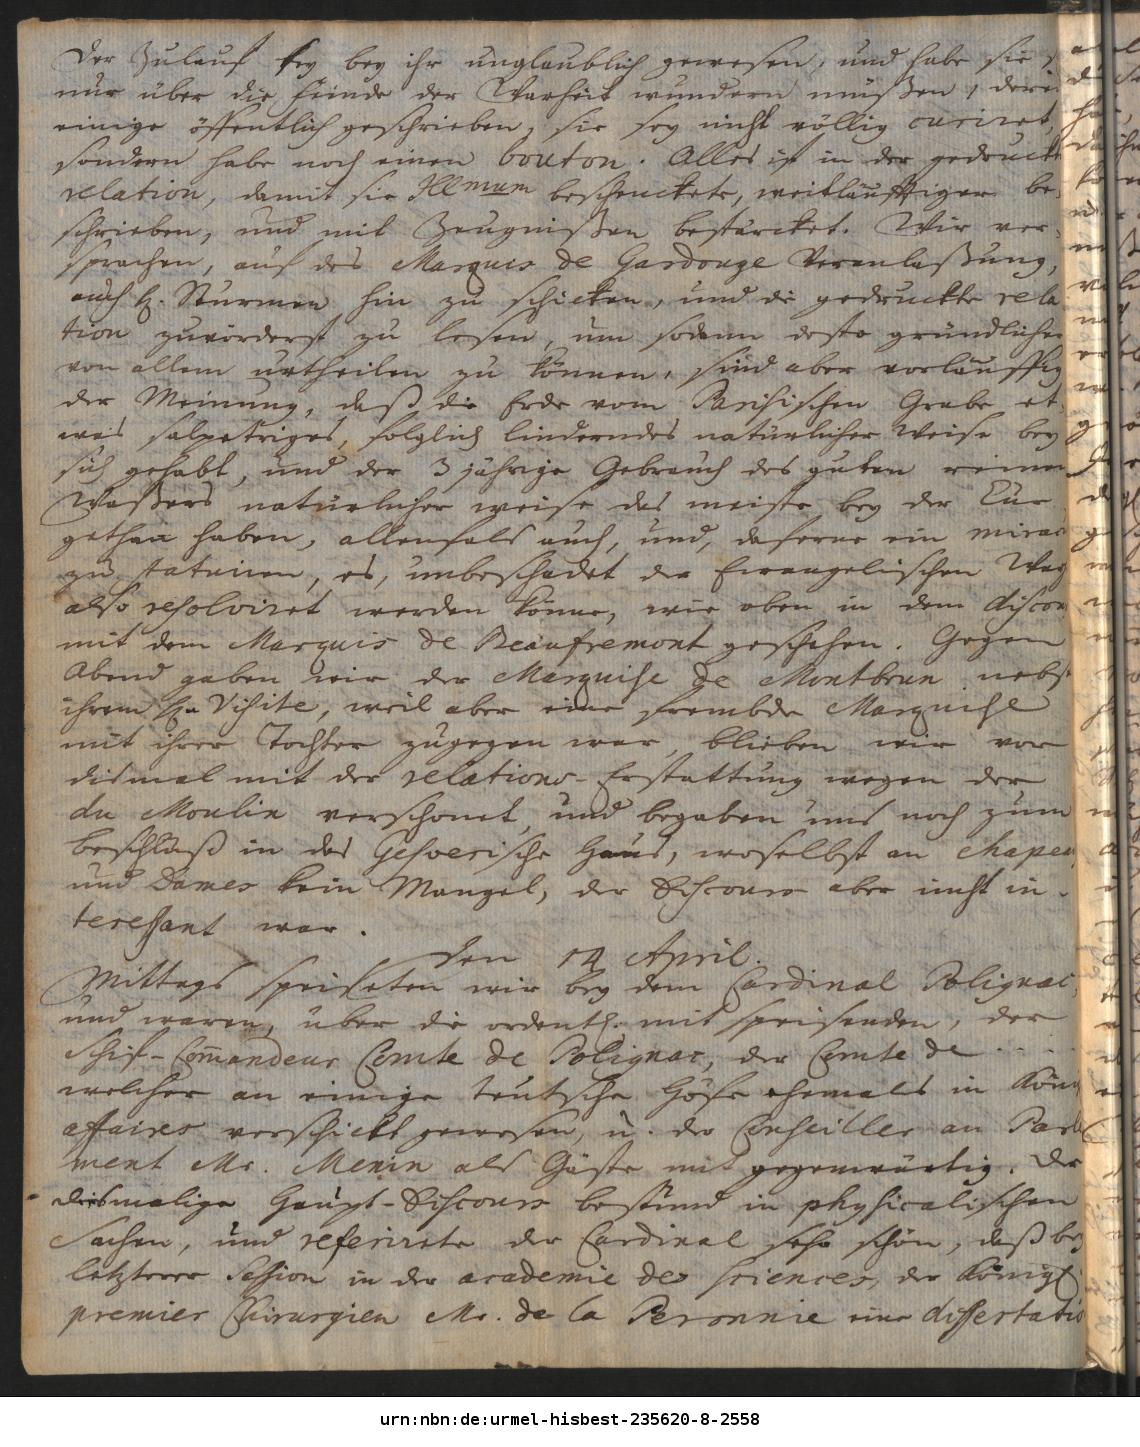 Der Zulauf sey bey ihr unglaublich gewesen, und habe sie s
nur über die Feinde der Warheit wundern müßen, deren
einige öffentlich geschrieben, sie sey nicht völlig curiret,
sondern habe noch einen bouton. Alles ist in der gedruckt
relation, damit sie Illmum beschenckete, weitläufftiger be-
schrieben, und mit Zeugnißen bestärcket. Wir ver-
sprachen, auf des Marquis de Gardouge Veranlaßung,
auch H. Sturmen hin zu schicken, und die gedruckte rela
tion zuvörderst zu lesen, um sodann desto gründlicher
von allem urtheilen zu können, sind aber vorläuffig
der Meinung, daß die Erde vom Parisischen Grabe et-
was salpetriges, folglich linderndes natürlicher Weise bey
sich gehabt, und der 3 jährige Gebrauch des guten reinen
Waßers natürlicher weise das meiste bey der Cur
gethan haben, allenfals auch, und, daferne ein mirac
zu statuiren, es, unbeschadet der Evangelischen War
also resolviret werden könne, wie oben in dem discour
mit dem Marquis de Beaufremont geschehen. Gegen
Abend gaben wir der Marquise de Montbrun nebst
ihrem Hn Visite, weil aber eine frembde Marquise
mit ihrer Tochter zugegen war, blieben wir vor
dismal mit der relations-Erstattung wegen der
du Moulin verschonet, und begaben uns noch zum
beschluß in das Gesverische Haus, woselbst an chapeu
und Dames kein Mangel, der Discours aber nicht in-
teressant war.
den 14 April.
Mittags speiseten wir bey dem Cardinal Polignac,
und waren, über die ordentl. mit speisenden, der
Schif-Commandeur Comte de Polignac, der Comte de ....
welcher an einige teutsche Höfe ehemals in König
affaires verschickt gewesen, u. der Conseiller au Parle
ment Mr. Menin als Gäste mit gegenwärtig. Der
dismalige Haupt-Discours bestund in physicalischen
Sachen, und referirete der Cardinal sehr schön, daß bey
letzterer Session in der academie des sciences, der Königl
premier Chirurgien Mr. de la Peronnie eine dissertatio
urn:nbn:de:urmel-hisbest-235620-8-2558